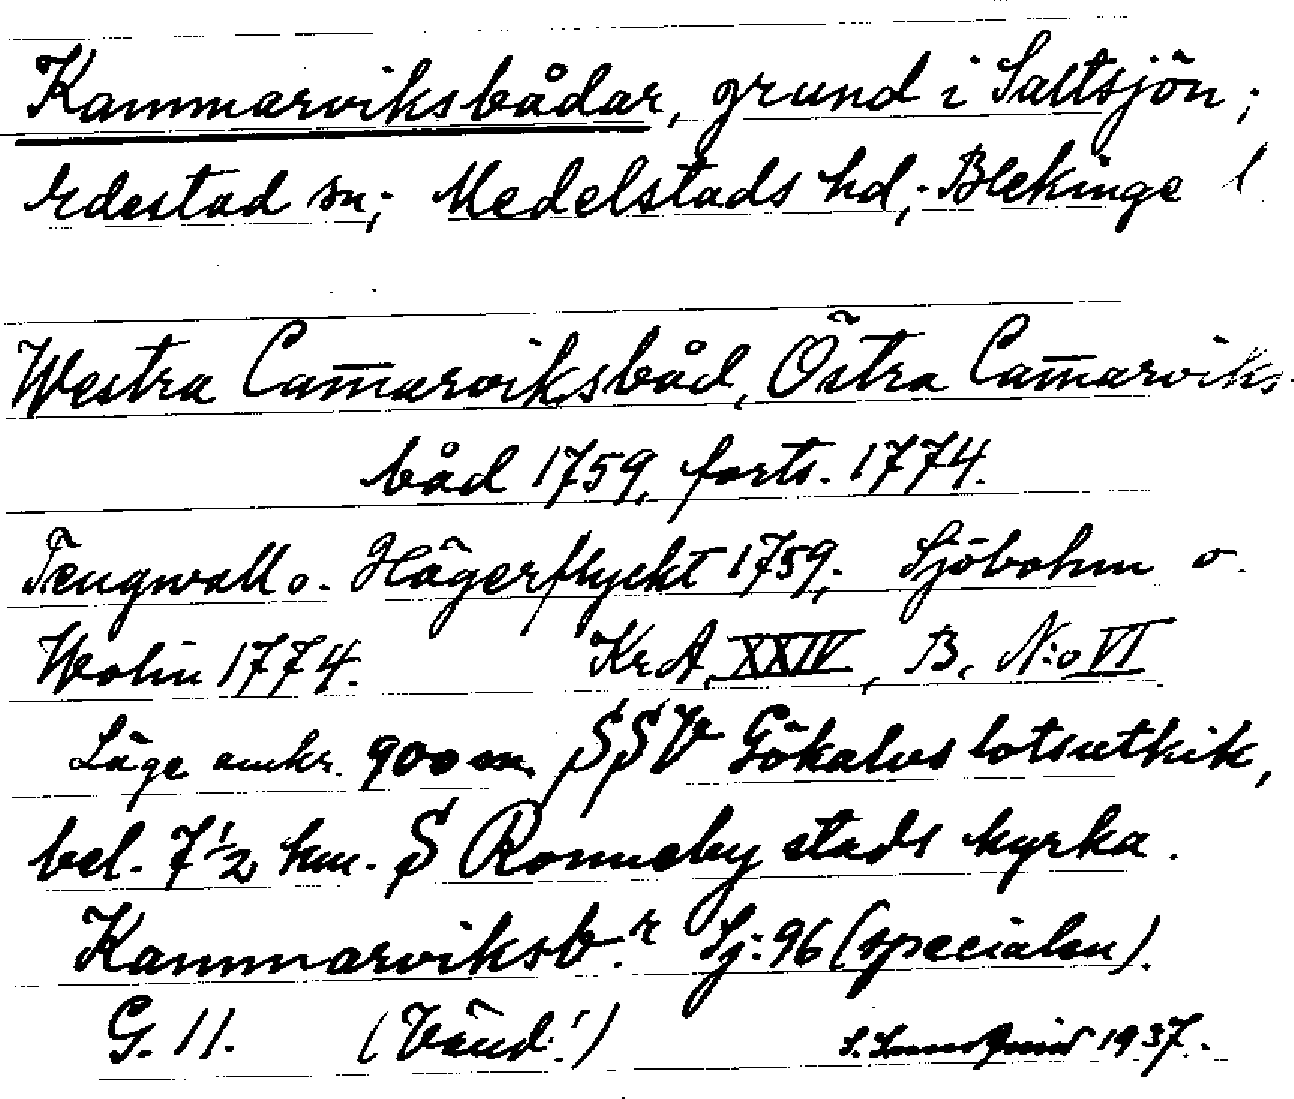 Kammarviksbådar, grund i Saltsjön;
Edestad sn; Medelstads hd; Blekinge l
Westra Cam̄arviksbåd, Östra Cam̄arviks-
båd 1759, forts. 1774.
Tengwall o. Hägerflyckt 1759; Sjöbohm o.
Wolin 1774. Kr. A. XXIV, B, N:o VI
Läge omkr. 900 m. SSV Gökalvs lotsutkik,
bel. 7 1/2 km. S Ronneby stads kyrka.
Kammarviksb:r Sj: 96 (specialen).
G. 11. (Vänd!) 1937.